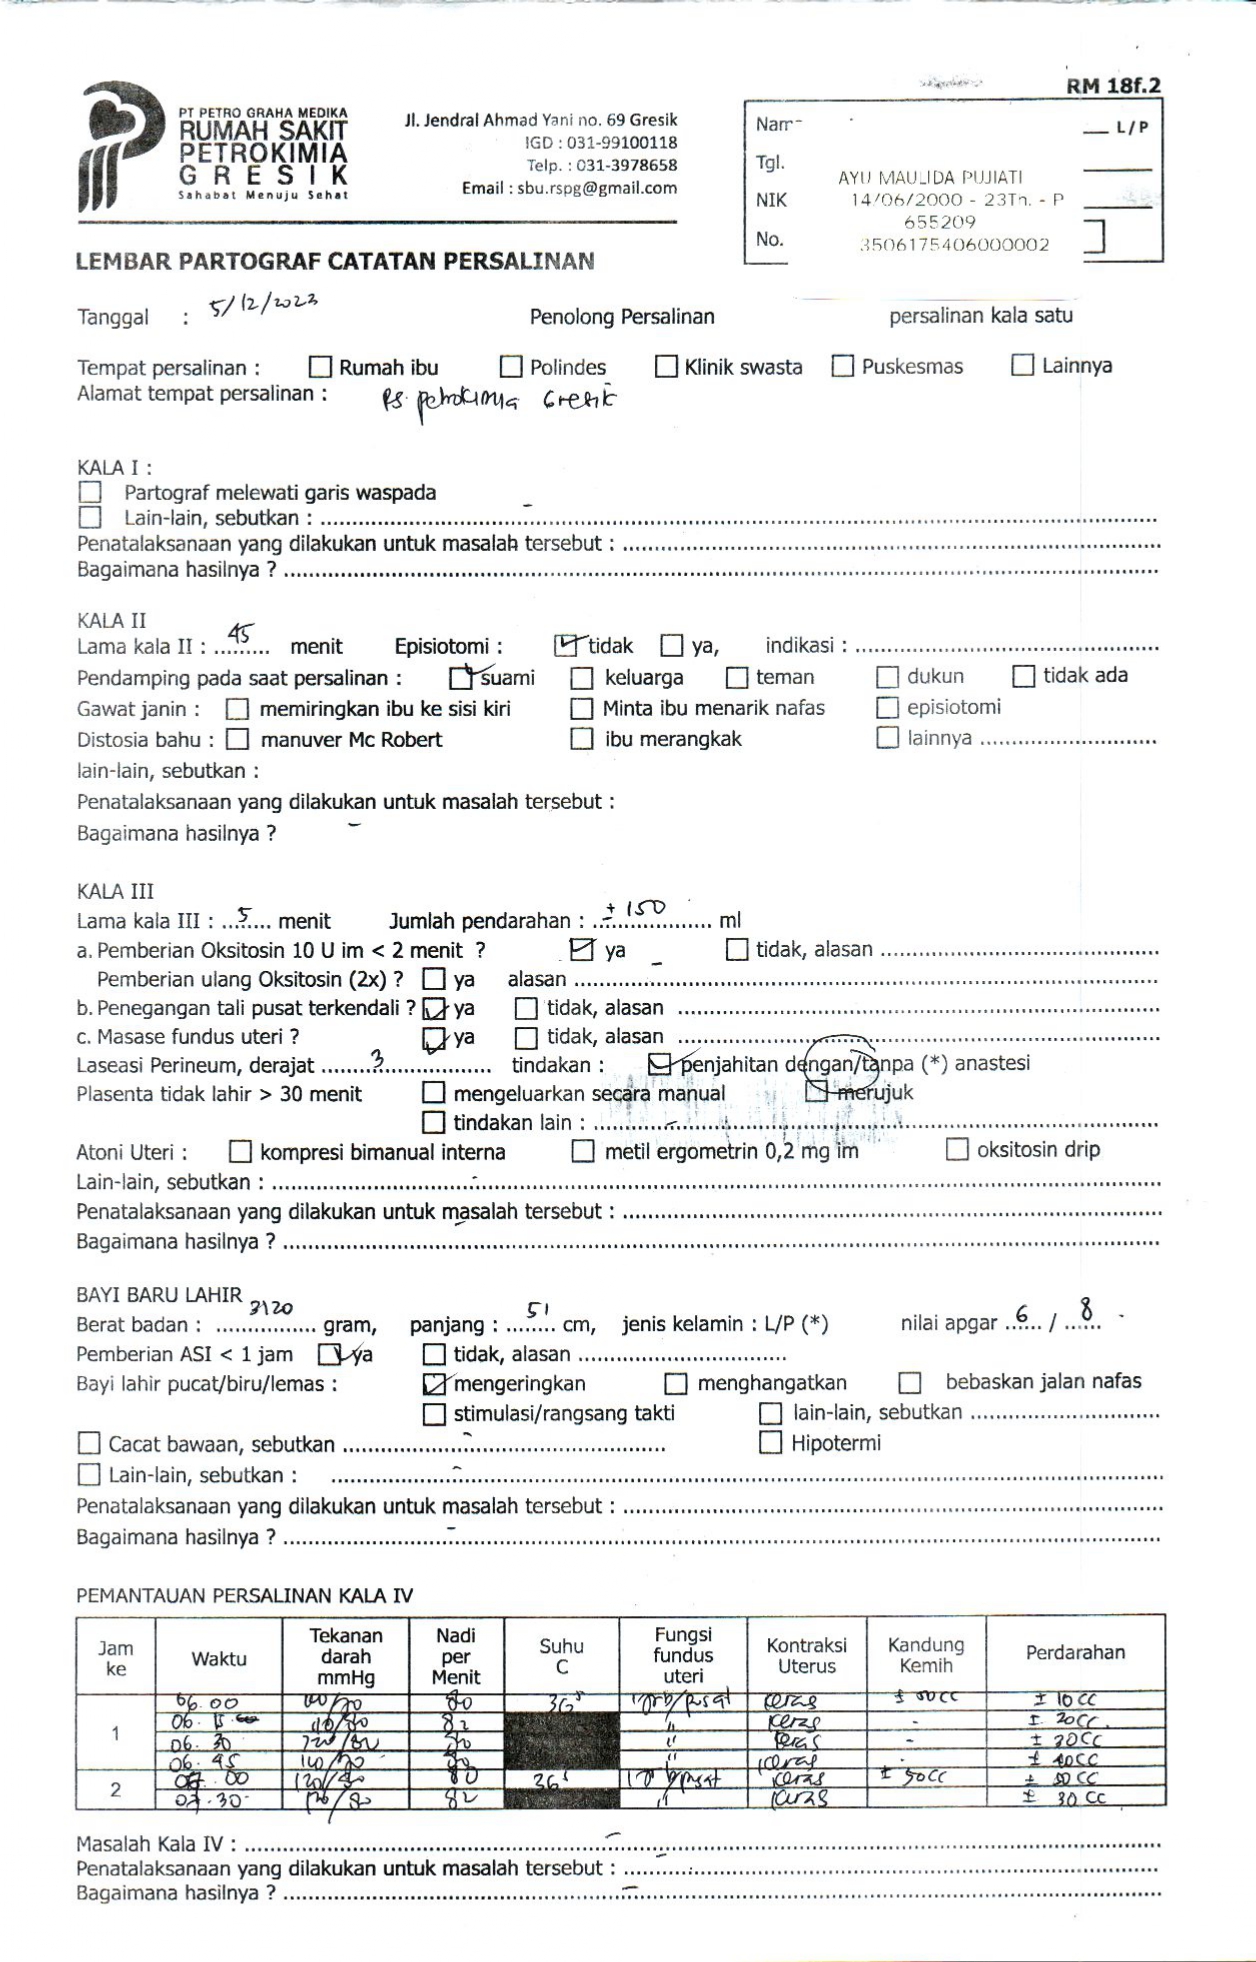 RM 18f.2
PT PETRO GRAHA MEDIKA
RUMAH SAKIT
PETROKIMIA
GRESIK
Sahabat Menuju Sehat
Jl. Jendral Ahmad Yani no. 69 Gresik
IGD : 031-99100118
Telp. : 031-3978658
Email : sbu.rspg@gmail.com
L/P
Tgl.
NIK
No.
AYU MAULIDA PUJIATI
14/06/2000 - 23Th. - P
655209
3506175406000002
LEMBAR PARTOGRAF CATATAN PERSALINAN
Tanggal : 5/12/2023 Penolong Persalinan persalinan kala satu
Tempat persalinan : Rumah ibu Polindes Klinik swasta Puskesmas Lainnya
Alamat tempat persalinan : RS. petrokimia Gresik
KALA I :
Partograf melewati garis waspada -
Lain-lain, sebutkan :
Penatalaksanaan yang dilakukan untuk masalah tersebut :
Bagaimana hasilnya ?
KALA II
Lama kala II : 45 menit Episiotomi : tidak ya, indikasi :
Pendamping pada saat persalinan : suami keluarga teman dukun tidak ada
Gawat janin : memiringkan ibu ke sisi kiri Minta ibu menarik nafas episiotomi
Distosia bahu : manuver Mc Robert ibu merangkak lainnya
lain-lain, sebutkan :
Penatalaksanaan yang dilakukan untuk masalah tersebut :
Bagaimana hasilnya ? -
KALA III
Lama kala III : 5 menit Jumlah pendarahan : ± 150 ml
a. Pemberian Oksitosin 10 U im < 2 menit ? ya tidak, alasan
Pemberian ulang Oksitosin (2x) ? ya alasan -
b. Penegangan tali pusat terkendali ? ya tidak, alasan
c. Masase fundus uteri ? ya tidak, alasan
Laseasi Perineum, derajat 3 tindakan : penjahitan dengan/tanpa (*) anastesi
Plasenta tidak lahir > 30 menit mengeluarkan secara manual merujuk
tindakan lain : -
Atoni Uteri : kompresi bimanual interna metil ergometrin 0,2 mg im oksitosin drip
Lain-lain, sebutkan : -
Penatalaksanaan yang dilakukan untuk masalah tersebut :
Bagaimana hasilnya ? -
BAYI BARU LAHIR
Berat badan : 3120 gram, panjang : 51 cm, jenis kelamin : L/P (*) nilai apgar 6 / 8
Pemberian ASI < 1 jam ya tidak, alasan
Bayi lahir pucat/biru/lemas : mengeringkan menghangatkan bebaskan jalan nafas
stimulasi/rangsang takti lain-lain, sebutkan
Cacat bawaan, sebutkan - Hipotermi
Lain-lain, sebutkan : -
Penatalaksanaan yang dilakukan untuk masalah tersebut :
Bagaimana hasilnya ? -
PEMANTAUAN PERSALINAN KALA IV
Jam ke Waktu Tekanan darah mmHg Nadi per Menit Suhu C Fungsi fundus uteri Kontraksi Uterus Kandung Kemih Perdarahan
1 06.00 80 36⁵ keras ± 10 cc
06.15 82 " keras - ± 20 cc
06.30 " keras - ± 30 cc
06.45 " keras ± 40 cc
2 07.00 80 36⁵ keras ± 50 cc ± 50 cc
07.30 82 " keras ± 30 cc
Masalah Kala IV : -
Penatalaksanaan yang dilakukan untuk masalah tersebut : -
Bagaimana hasilnya ? -